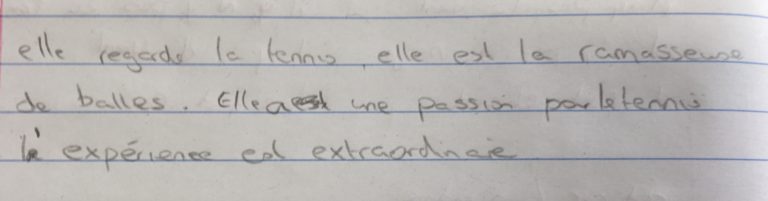 elle regarde la tennis, elle est la ramasseuse
de balles. Elle a une passion par le tennis
L'expérience est extraordinaie